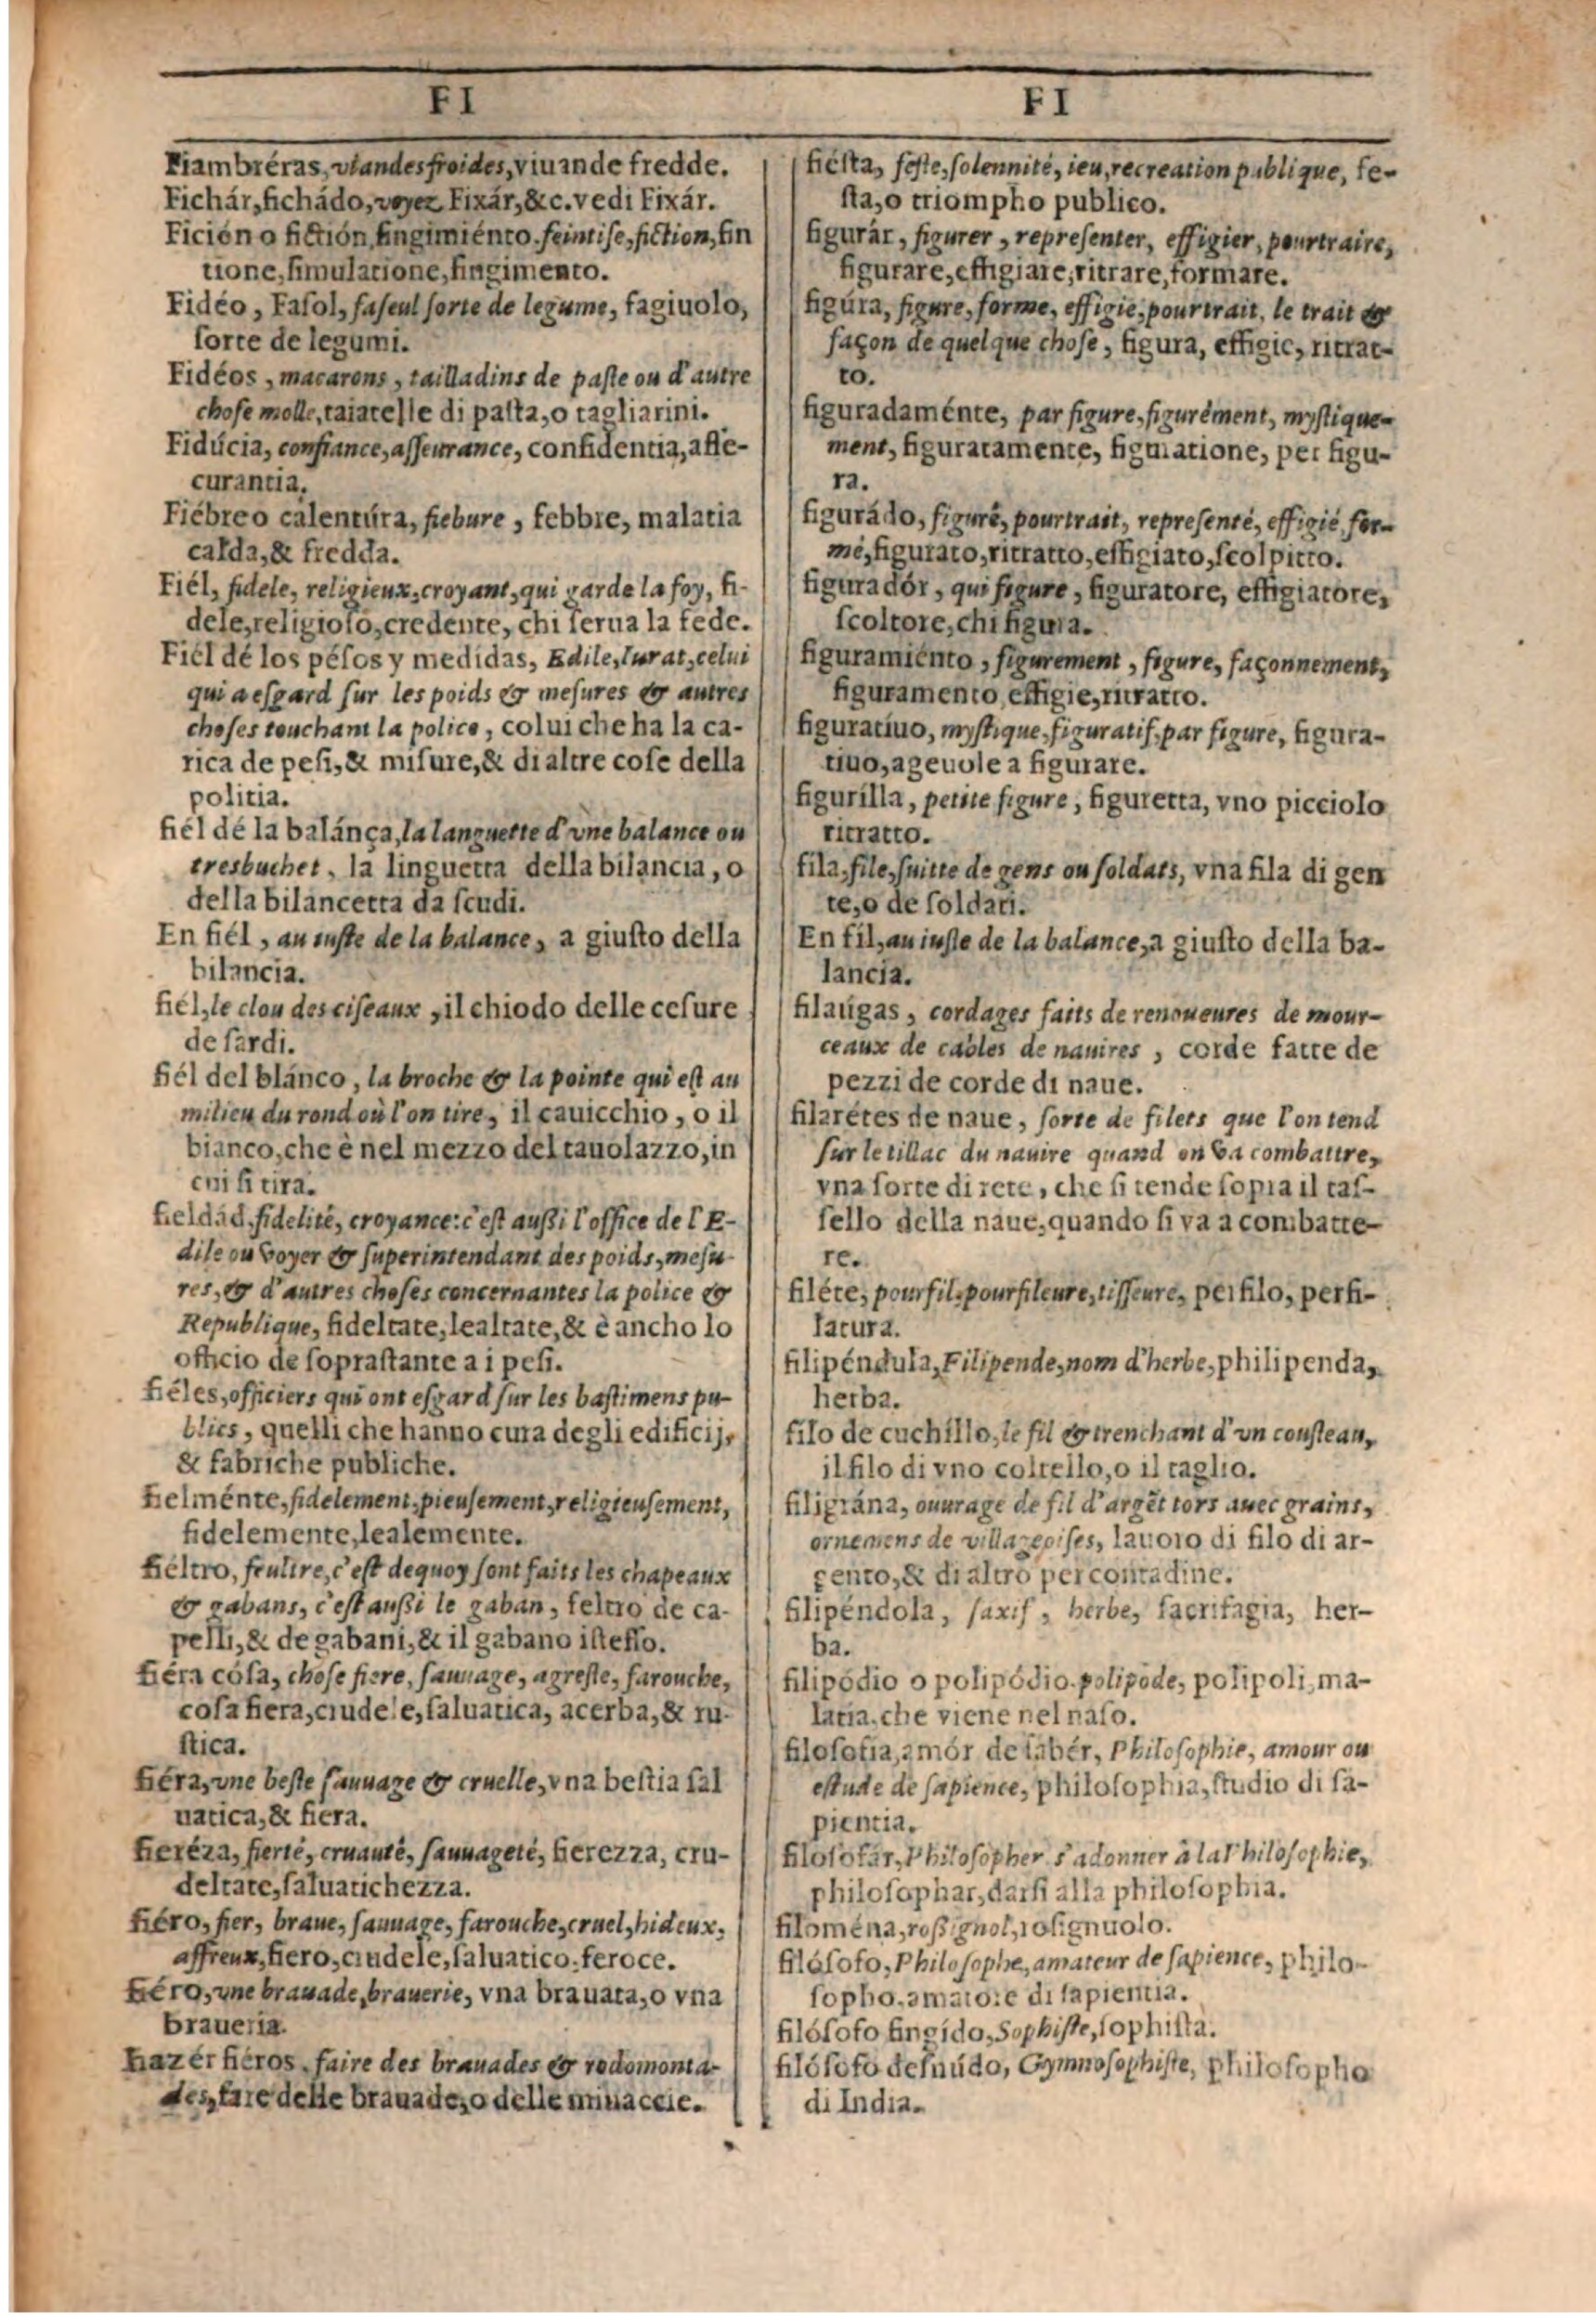 FI
Fiambréras, viandes froides, viuande fredde.
Fichár, fichádo, voyez Fixár, &c. vedi Fixár.
Fición o fictión, fingimiénto. feintise, fiction, fin
tione, simulatione, fingimento.
Fidéo, Fasol, faseul sorte de legume, fagiuolo,
sorte de legumi.
Fidéos, macarons, tailladins de paste ou d'autre
chose molle, taiatelle di pasta, o tagliarini.
Fidúcia, confiance, asseurance, confidentia, asse-
curantia.
Fiébre o calentúra, fiebure, febbre, malatia
calda, & fredda.
Fiél, fidele, religieux, croyant, qui garde la foy, fi-
dele, religioso, credente, chi serua la fede.
Fiél dé los pésos y medídas, Edile, Iurat, celui
qui a esgard sur les poids & mesures & autres
choses touchant la police, colui che ha la ca-
rica de pesi, & misure, & di altre cose della
politia.
fiél dé la balánça, la languette d'vne balance ou
tresbuchet, la linguetta della bilancia, o
della bilancetta da scudi.
En fiél, au iuste de la balance, a giusto della
bilancia.
fiél, le clou des ciseaux, il chiodo delle cesure
de sardi.
fiél del blánco, la broche & la pointe qui est au
milieu du rond où l'on tire, il cauicchio, o il
bianco, che è nel mezzo del tauolazzo, in
cui si tira.
fieldád, fidelité, croyance: c'est aussi l'office de l'E-
dile ou voyer & superintendant des poids, mesu-
res, & d'autres choses concernantes la police &
Republique, fideltate, lealtate, & è ancho lo
officio de soprastante a i pesi.
fiéles, officiers qui ont esgard sur les bastimens pu-
blics, quelli che hanno cura degli edificij,
& fabriche publiche.
fielménte, fidelement, pieusement, religieusement,
fidelemente, lealemente.
fiéltro, feultre, c'est dequoy sont faits les chapeaux
& gabans, c'est aussi le gaban, feltro de ca-
pelli, & de gabani, & il gabano istesso.
fiéra cósa, chose fiere, sauuage, agreste, farouche,
cosa fiera, crudele, saluatica, acerba, & ru-
stica.
fiéra, vne beste sauuage & cruelle, vna bestia sal
uatica, & fiera.
fieréza, fierté, cruauté, sauuageté, fierezza, cru-
deltate, saluatichezza.
fiéro, fier, braue, sauuage, farouche, cruel, hideux,
affreux, fiero, crudele, saluatico, feroce.
fiéro, vne brauade, brauerie, vna brauata, o vna
braueria.
hazér fiéros, faire des brauades & rodomonta-
des, fare delle brauade, o delle minaccie.
FI
fiésta, feste, solennité, ieu, recreation publique, fe-
sta, o triompho publico.
figurár, figurer, representer, effigier, pourtraire,
figurare, effigiare, ritrare, formare.
figúra, figure, forme, effigie, pourtrait, le trait &
façon de quelque chose, figura, effigie, ritrat-
to.
figuradaménte, par figure, figurément, mystique-
ment, figuratamente, figuratione, per figu-
ra.
figurádo, figuré, pourtrait, representé, effigié, for-
mé, figurato, ritratto, effigiato, scolpitto.
figuradór, qui figure, figuratore, effigiatore,
scoltore, chi figura.
figuramiénto, figurement, figure, façonnement,
figuramento, effigie, ritratto.
figuratíuo, mystique, figuratif, par figure, figura-
tiuo, ageuole a figurare.
figurílla, petite figure, figuretta, vno picciolo
ritratto.
fila, file, suitte de gens ou soldats, vna fila di gen
te, o de soldati.
En fíl, au iuste de la balance, a giusto della ba-
lancia.
filaúgas, cordages faits de renoueures de mour-
ceaux de cables de nauires, corde fatte de
pezzi de corde di naue.
filarétes de naue, sorte de filets que l'on tend
sur le tillac du nauire quand on va combattre,
vna sorte di rete, che si tende sopra il tas-
sello della naue, quando si va a combatte-
re.
filéte, pourfil, pourfileure, tisseure, perfilo, perfi-
latura.
filipéndula, Filipende, nom d'herbe, philipenda,
herba.
fílo de cuchíllo, le fil & trenchant d'vn cousteau,
il filo di vno coltello, o il taglio.
filigrána, ouurage de fil d'argẽt tors auec grains,
ornemens de villageoises, lauoro di filo di ar-
gento, & di altro per contadine.
filipéndola, saxif, herbe, sacrifagia, her-
ba.
filipódio o polipódio. polipode, polipoli, ma-
latia, che viene nel naso.
filosofia, amór de sabér, Philosophie, amour ou
estude de sapience, philosophia, studio di sa-
pientia.
filosofár, Philosopher s'adonner à la Philosophie,
philosophar, darsi alla philosophia.
filoména, rossignol, rosignuolo.
filósofo, Philosophe, amateur de sapience, philo-
sopho, amatore di sapientia.
filósofo fingído, Sophiste, sophista.
filósofo desnúdo, Gymnosophiste, philosopho
di India.